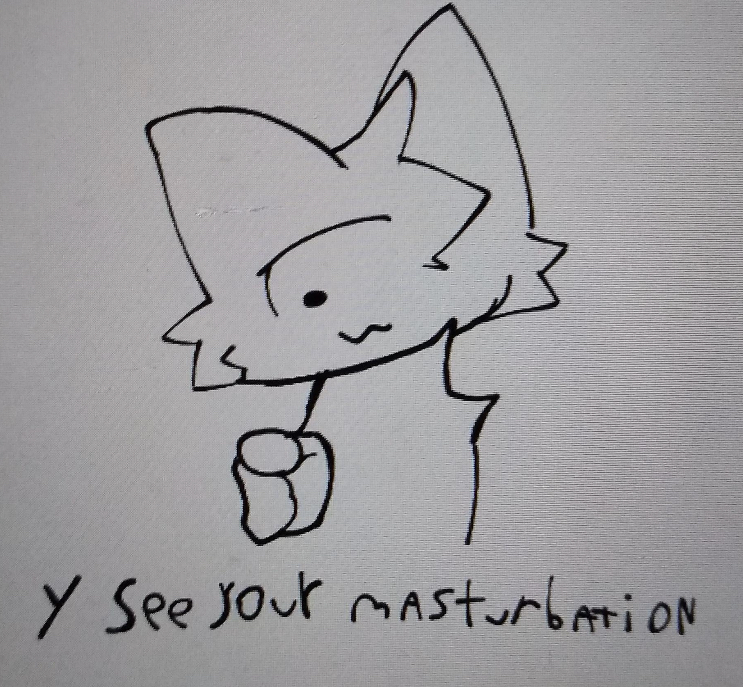 y see your mASturbATiON